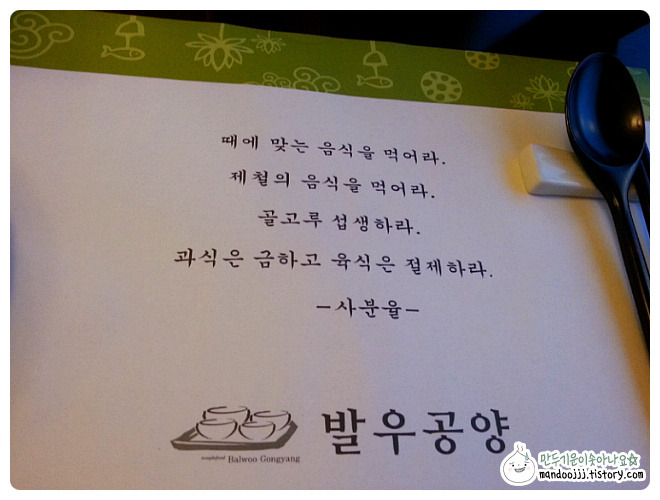 때에 맞는 음식을 먹어라.
제철의 음식을 먹어라.
골고루 섭생하라.
과식은 금하고 육식은 절제하라.
-사분율-
발우공양
templefood Balwoo Gongyang
만두기운이솟아나요☆
mandoojjj.tistory.com